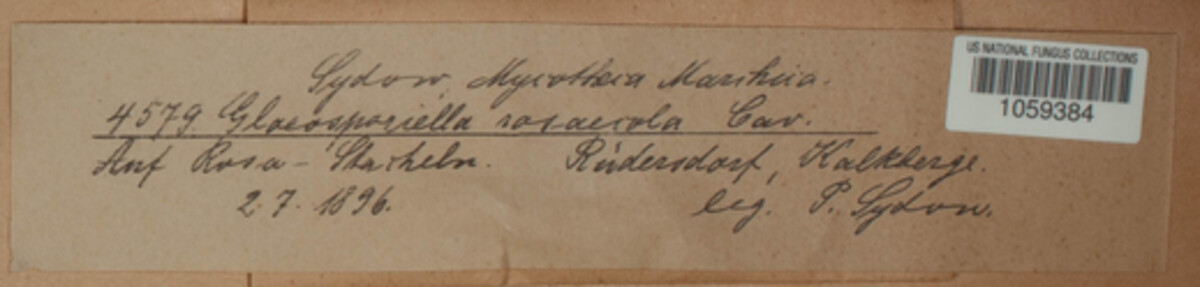 Sydow, Mycotheca Marchica.
4579 Gloeosporiella rosaecola Cav.
Auf Rosa-Stacheln. Rüdersdorf, Kalkberge.
2.7.1896. leg. P. Sydow.
US NATIONAL FUNGUS COLLECTIONS
1059384